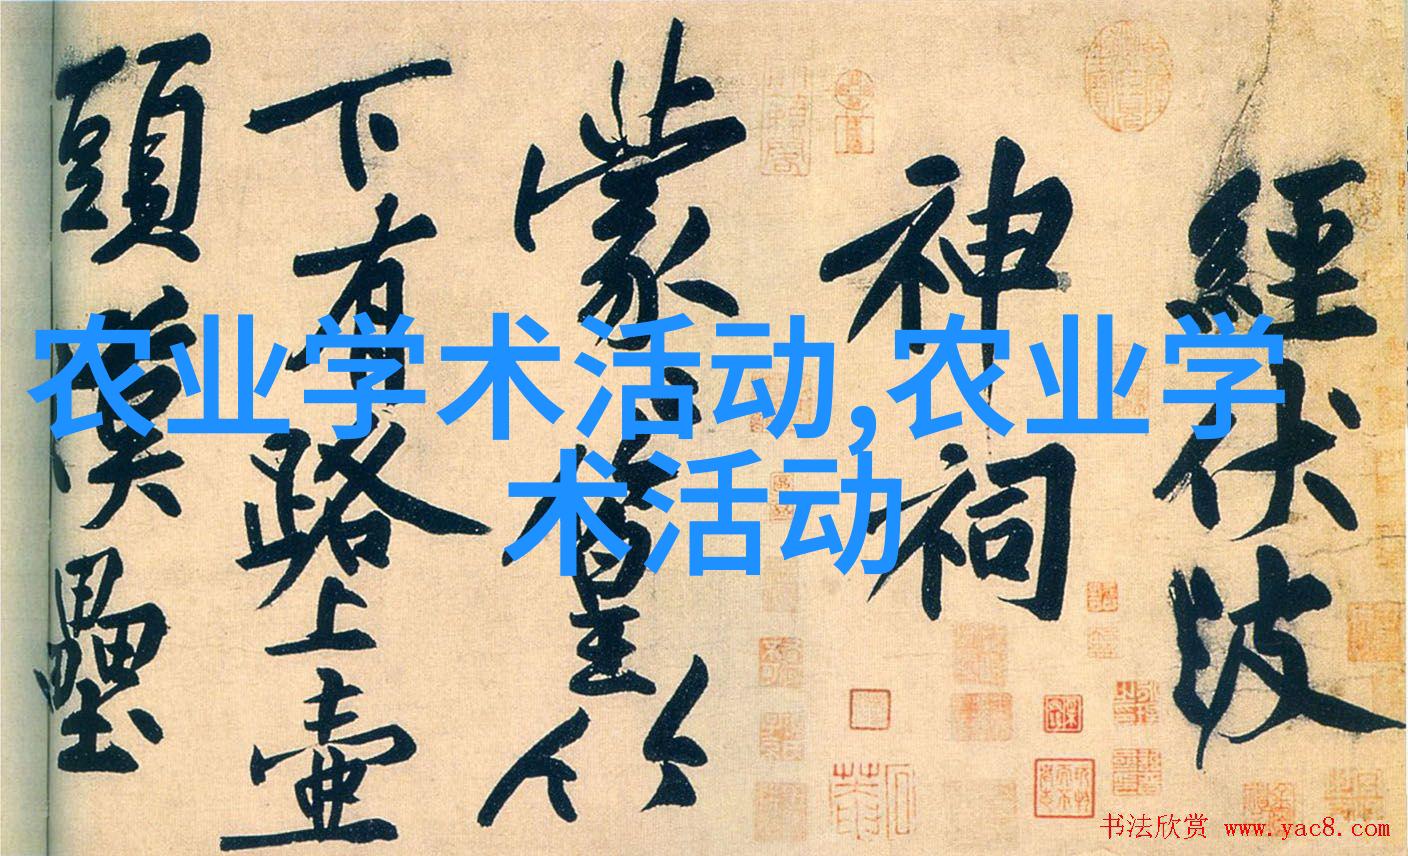 經伏波
神祠
蒙蒙篁竹
下有路上壺
頭漢壘
农业学术活动,农业学
术活动
书法欣赏 www.yac8.com